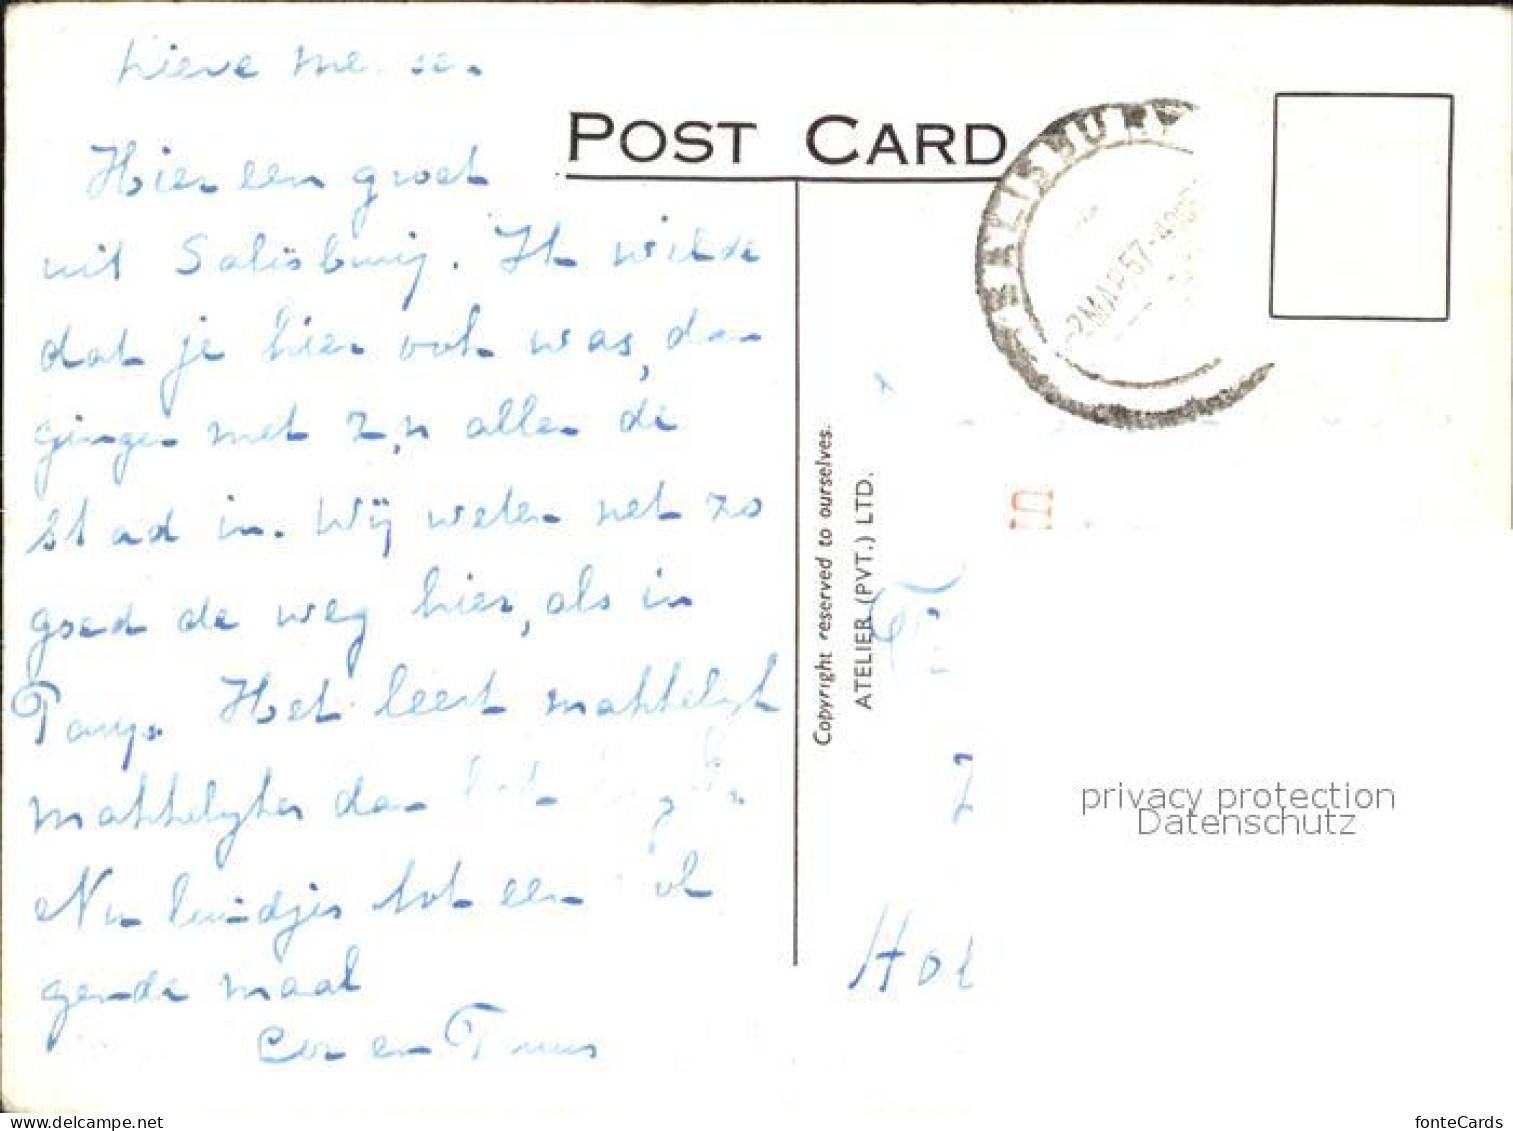 Lieve mense.
POST CARD
Hier een groet
uit Salisbury. Ik wilde
dat je hier ook was, dan
gingen met z,n allen de
stad in. Wij weten net zo
goed de weg hier, als in
Het leert makkelijk
makkelijker dan
Nu luidjes tot een
gende maal
Cor en Truus
SALISBURY
-2 MAR 57-4
Copyright reserved to ourselves.
ATELIER (PVT.) LTD.
Hol
privacy protection
Datenschutz
fonteCards